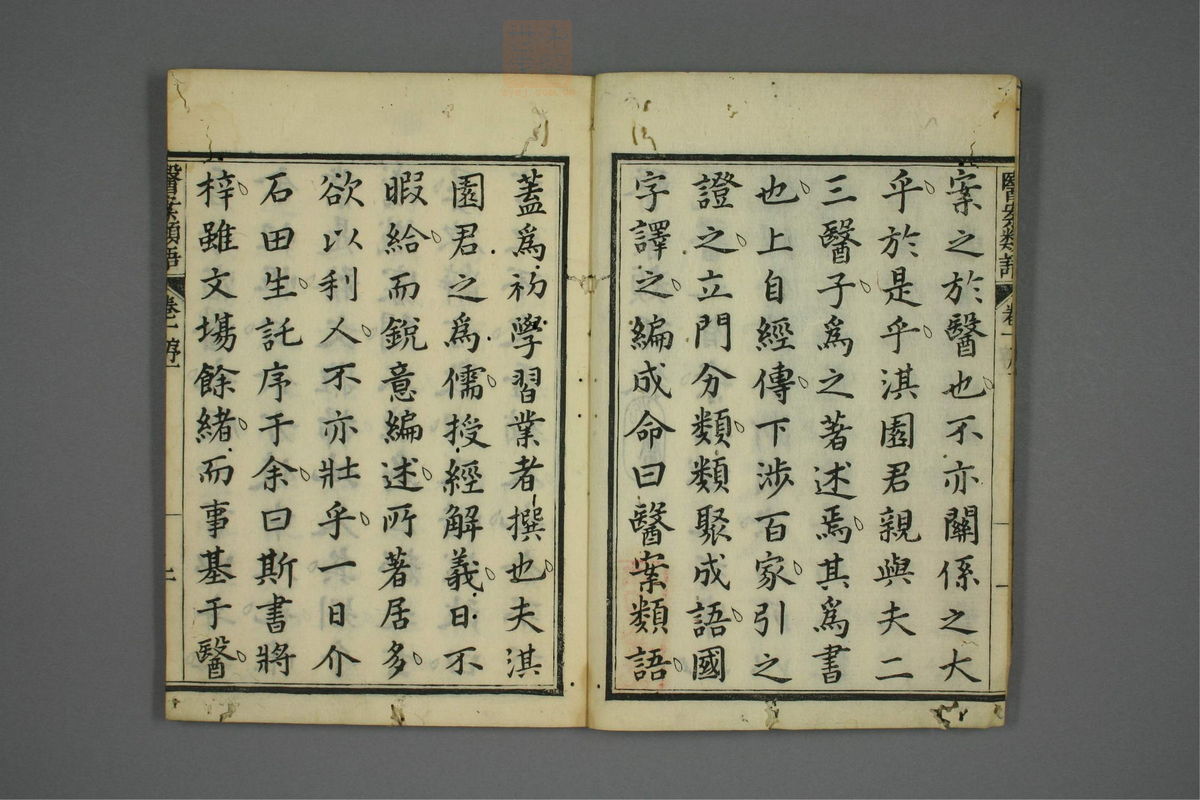 案之於醫也不亦關係之大
乎於是乎淇園君親與夫二
三醫子爲之著述焉其爲書
也上自經傳下涉百家引之
證之立門分類類聚成語國
字譯之編成命曰醫案類語
蓋爲初學習業者撰也夫淇
園君之爲儒授經解義日不
暇給而銳意編述所著居多
欲以利人不亦壯乎一日介
石田生託序于余曰斯書將
梓雖文場餘緒而事基于醫
醫案類語
卷一序